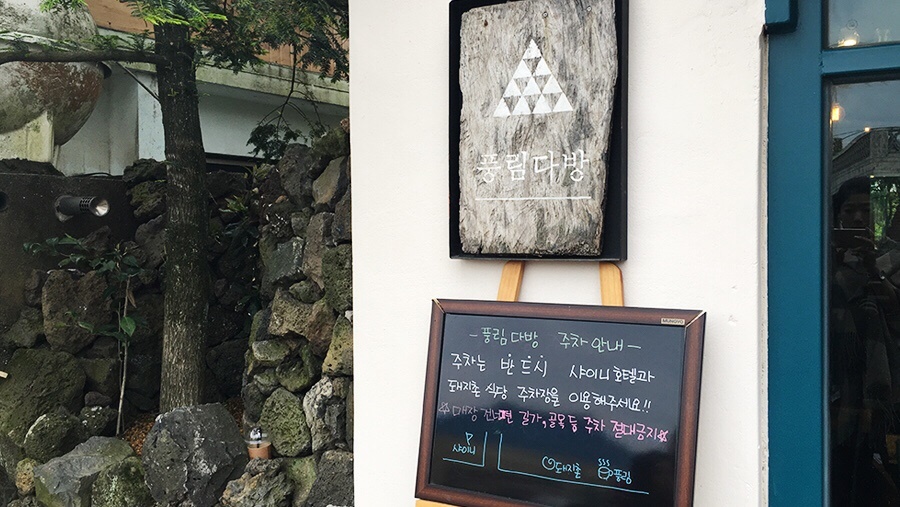 풍림다방
MUNGYO
- 풍림다방 주차 안내 -
주차는 반드시 샤이니 호텔과
돼지촌 식당 주차장을 이용해주세요!!
☆ 매장 건너편 길가, 골목 등 주차 절대금지☆
샤이니
돼지촌
풍림